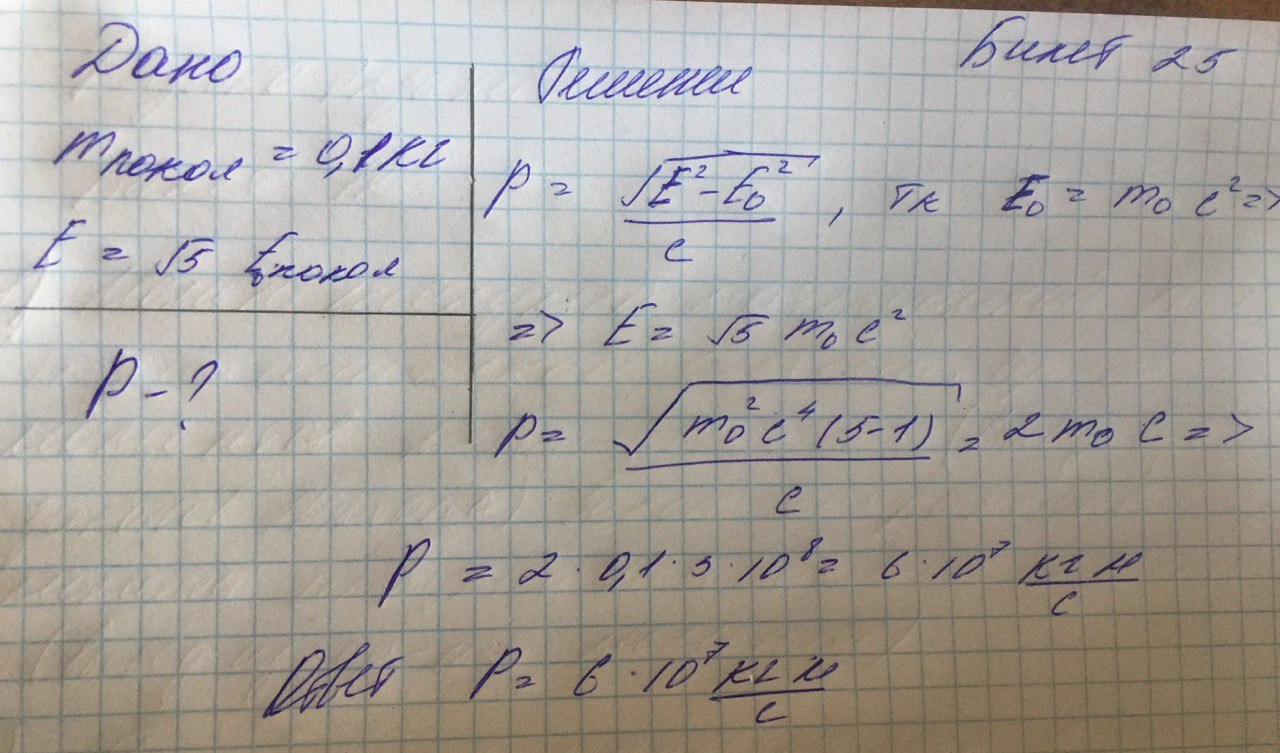 Билет 25
Дано
m покоя = 0,1 кг
E = √5 E₀ покоя
P - ?
Решение
P = √(E² - E₀²) / c , тк E₀ = m₀ c² =>
=> E = √5 m₀ c²
P = √(m₀² c⁴ (5-1)) / c = 2 m₀ c =>
P = 2 · 0,1 · 3 · 10⁸ = 6 · 10⁷ кг м / с
Ответ P = 6 · 10⁷ кг м / с